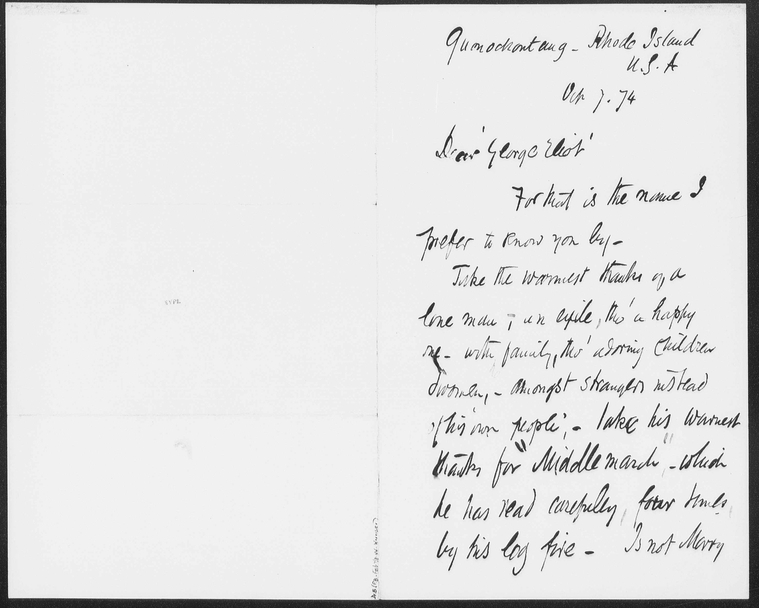 Quonochontaug - Rhode Island
U.S.A
Oct 7. 74
Dear 'George Eliot'
For that is the name I
prefer to know you by -
Take the warmest thanks of a
lone man, an exile, tho' a happy
one - with family, tho' adoring children
& women, - amongst strangers instead
of his 'own people', - take his warmest
thanks for "Middlemarch", - which
he has read carefully, four times,
by his log fire - Is not Mary